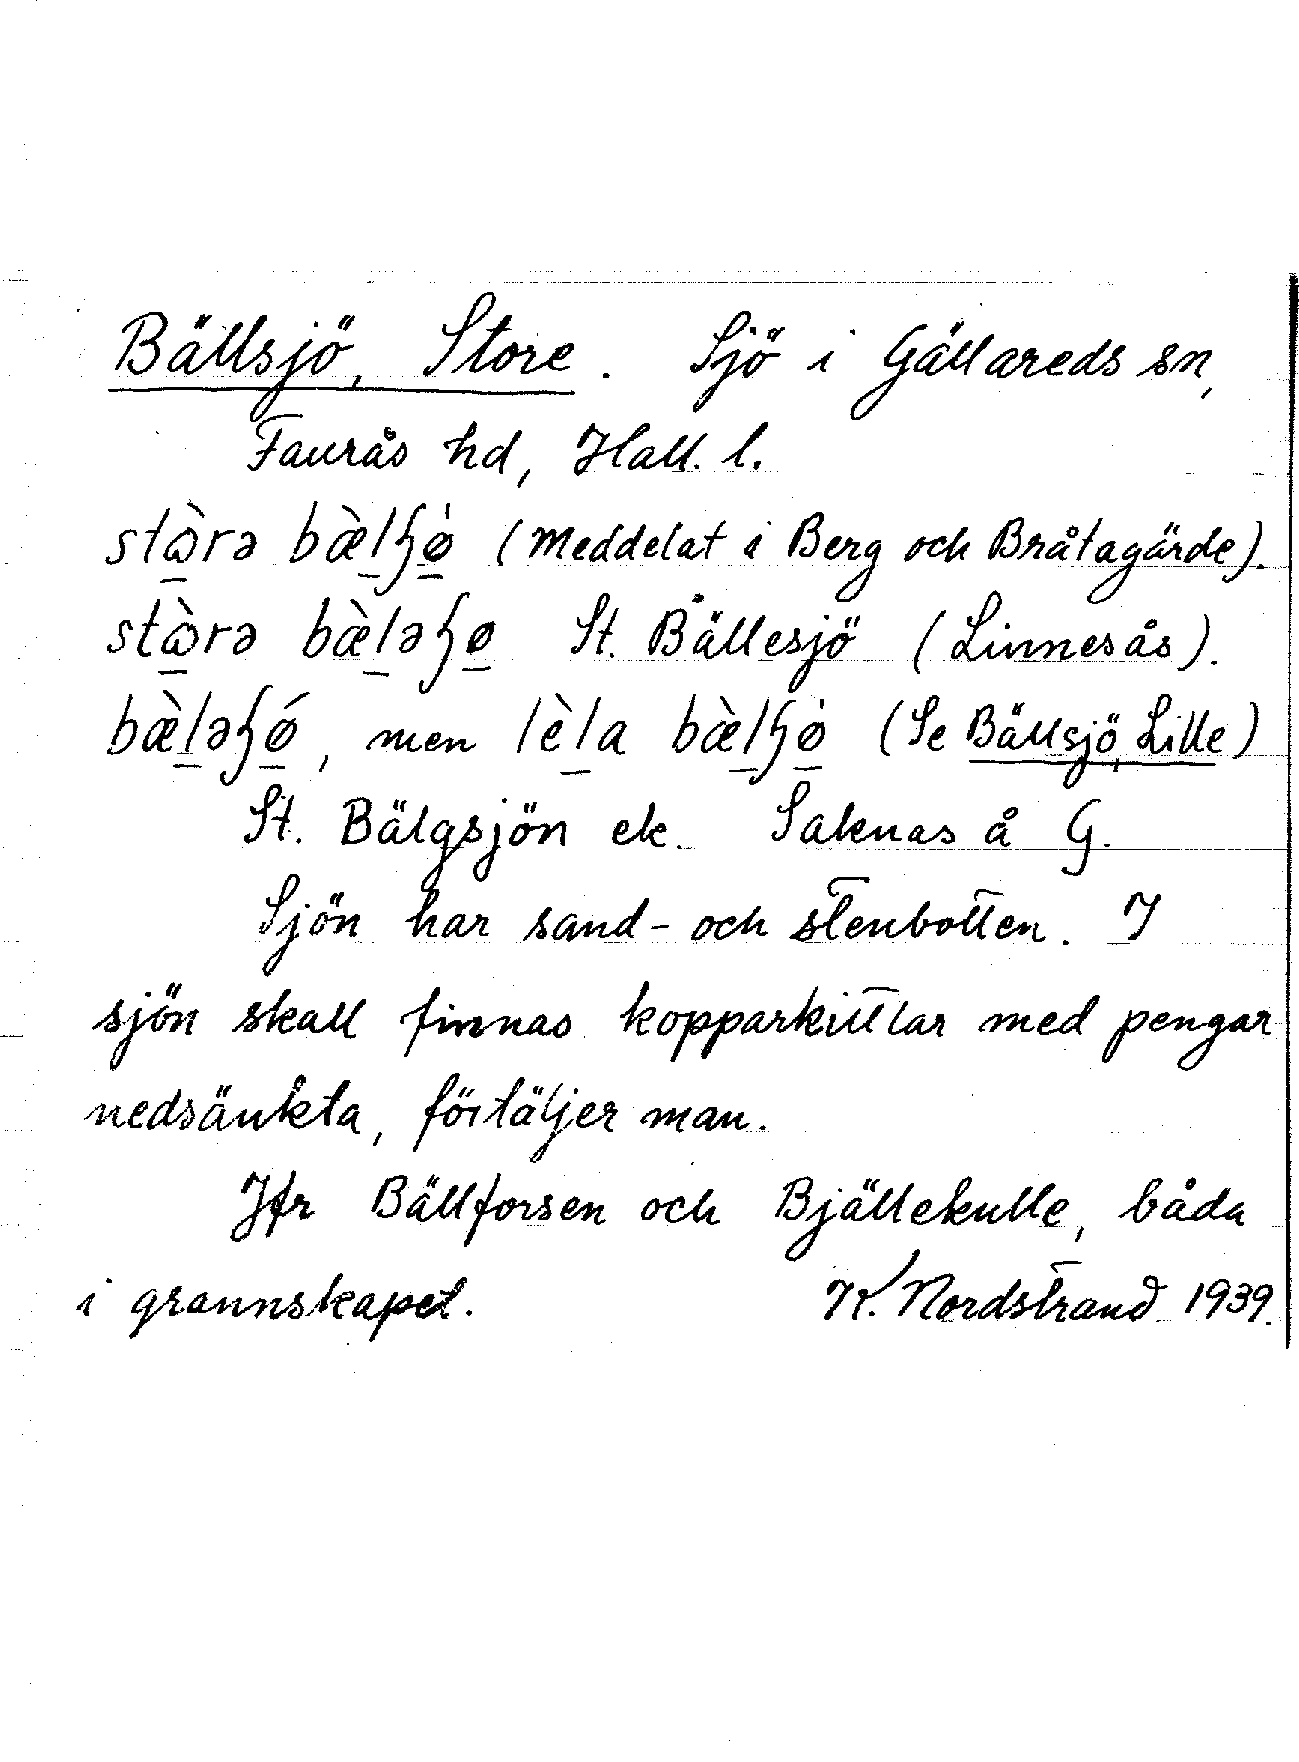 Bällsjö, Store. Sjö i Gällareds sn,
Faurås hd, Hall. l.
stɷ̀rə bæ̀lʃø̍ (Meddelat i Berg och Bråtagärde).
stɷ̀rə bæ̀ləʃø St. Bällesjö (Linnesås).
bæ̀ləʃǿ, men lèla bæ̀lʃø̍ (Se Bällsjö, Lille)
St. Bälgsjön ek. Saknas å G.
Sjön har sand- och stenbotten. I
sjön skall finnas kopparkittlar med pengar
nedsänkta, förtäljer man.
Jfr Bällforsen och Bjällekulle, båda
i grannskapet. K. Nordstrand 1939.